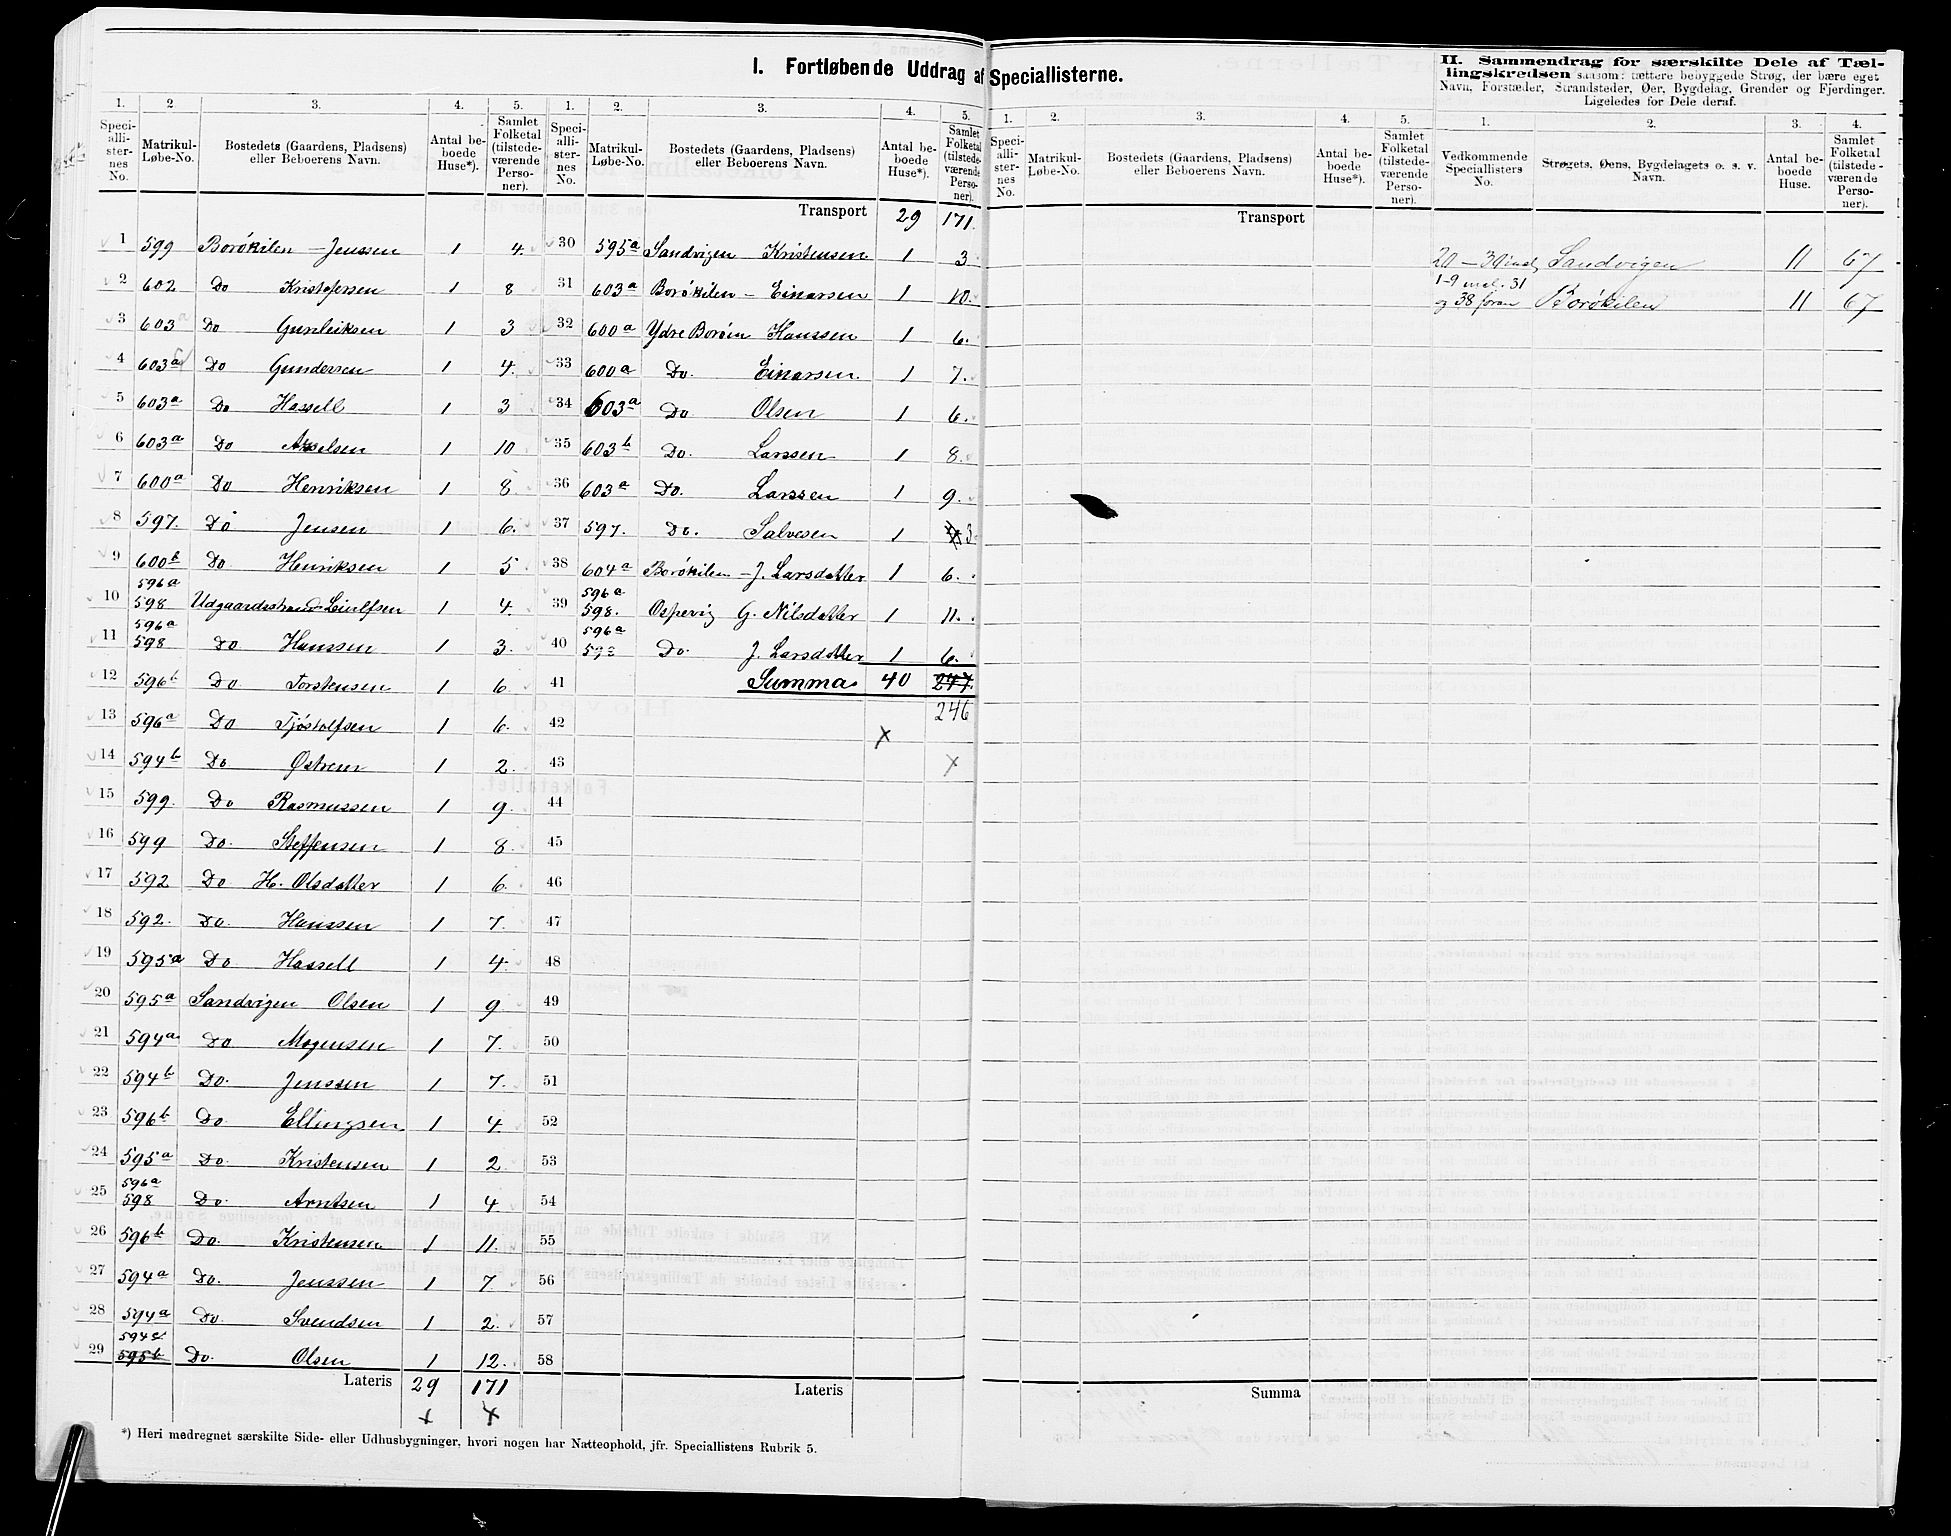 I. Fortløbende Uddrag af Speciallisterne.
II. Sammendrag for særskilte Dele af Tæl-
lingskredsen saasom: tættere bebyggede Strøg, der bære eget
Navn, Forstæder, Strandsteder, Øer, Bygdelag, Grender og Fjerdinger.
Ligeledes for Dele deraf.
1. 2 3. 4. 5. 1. 2. 3. 4. 5. 1. 2. 3. 4. 5. 1. 2. 3. 4.
Speciallisternes No. Matrikul-Løbe-No. Bostedets (Gaardens, Pladsens) eller Beboerens Navn. Antal beboede Huse*). Samlet Folketal (tilstedeværende Personer).
Speciallisternes No. Matrikul-Løbe-No. Bostedets (Gaardens, Pladsens) eller Beboerens Navn. Antal beboede Huse*). Samlet Folketal (tilstedeværende Personer).
Speciallisternes No. Matrikul-Løbe-No. Bostedets (Gaardens, Pladsens) eller Beboerens Navn. Antal beboede Huse*). Samlet Folketal (tilstedeværende Personer).
Vedkommende Speciallisters No. Strøgets, Øens, Bygdelagets o. s. v. Navn. Antal beboede Huse. Samlet Folketal (tilstedeværende Personer).
1 599 Borøkilen – Jenssen 1 4.
2 602 Do Kristofersen 1 8
3 603a Do Gunleiksen 1 3
4 603a Do Gundersen 1 4.
5 603a Do Hassell 1 3
6 603a Do Axelsen 1 10
7 600a Do Henriksen 1 8
8 597. Do Jensen 1 6.
9 600b Do Henriksen 1 5
10 596a 598 Udgaardsstrand Leiulfsen 1 4.
11 596a 598 Do Hanssen 1 3.
12 596b Do Torstensen 1 6.
13 596a Do Tjøstolfsen 1 6.
14 594b Do Østrem 1 2.
15 599. Do Rasmussen 1 9.
16 599 Do. Steffensen 1 8.
17 592 Do H. Olsdatter 1 6.
18 592. Do. Hanssen 1 7.
19 595a Do Hassell 1 4.
20 595a Sandvigen Olsen 1 9
21 594a Do Mogensen 1 7.
22 594b Do. Jenssen 1 7.
23 596b Do. Ellingsen 1 4.
24 595a Do. Kristensen 1 2.
25 596a 598 Do. Arntsen 1 4.
26 596b Do. Kristensen 1 11.
27 594a Do. Jenssen 1 7.
28 594a Do. Svendsen 1 2.
29 594c 595b Do. Olsen 1 12.
Lateris 29 171
Transport 29 171.
30 595a Sandvigen Kristensen 1 3
31 603a Borøkilen – Einarsen 1 10.
32 600a Ydre Borøen Hanssen 1 6.
33 600a Do. Einarsen 1 7.
34 603a Do Olsen 1 6.
35 603b Do. Larssen 1 8.
36 603a Do. Larssen 1 9.
37 597. Do. Salvesen 1 3.
38 604a Borøkilen – J. Larsdatter 1 6.
39 596a 598. Ospevig G. Nilsdatter 1 11.
40 596a 598 Do. J. Larsdatter 1 6.
41 Summa 40 247.
42 246
43
44
45
46
47
48
49
50
51
52
53
54
55
56
57
58
Lateris
Transport
Summa
20 – 30 incl. Sandvigen 11 67
1-9 incl. 31
og 38 foran Borøkilen 11 67
*) Heri medregnet særskilte Side- eller Udhusbygninger, hvori nogen har Natteophold, jfr. Speciallistens Rubrik 5.